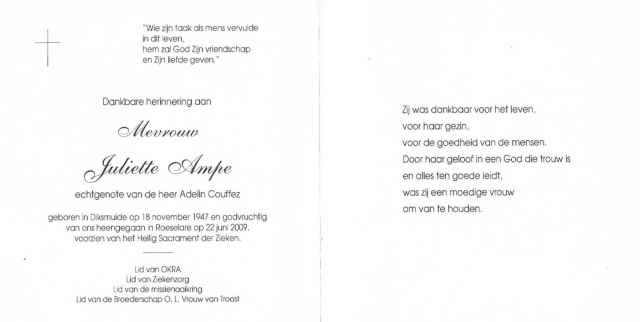 "Wie zijn taak als mens vervulde
in dit leven,
hem zal God Zijn vriendschap
en Zijn liefde geven."
Dankbare herinnering aan
Mevrouw
Juliette Ampe
echtgenote van de heer Adelin Couffez
geboren in Diksmuide op 18 november 1947 en godvruchtig
van ons heengegaan in Roeselare op 22 juni 2009,
voorzien van het Heilig Sacrament der Zieken.
Lid van OKRA
Lid van Ziekenzorg
Lid van de missienaaikring
Lid van de Broederschap O. L. Vrouw van Troost
Zij was dankbaar voor het leven,
voor haar gezin,
voor de goedheid van de mensen.
Door haar geloof in een God die trouw is
en alles ten goede leidt,
was zij een moedige vrouw
om van te houden.